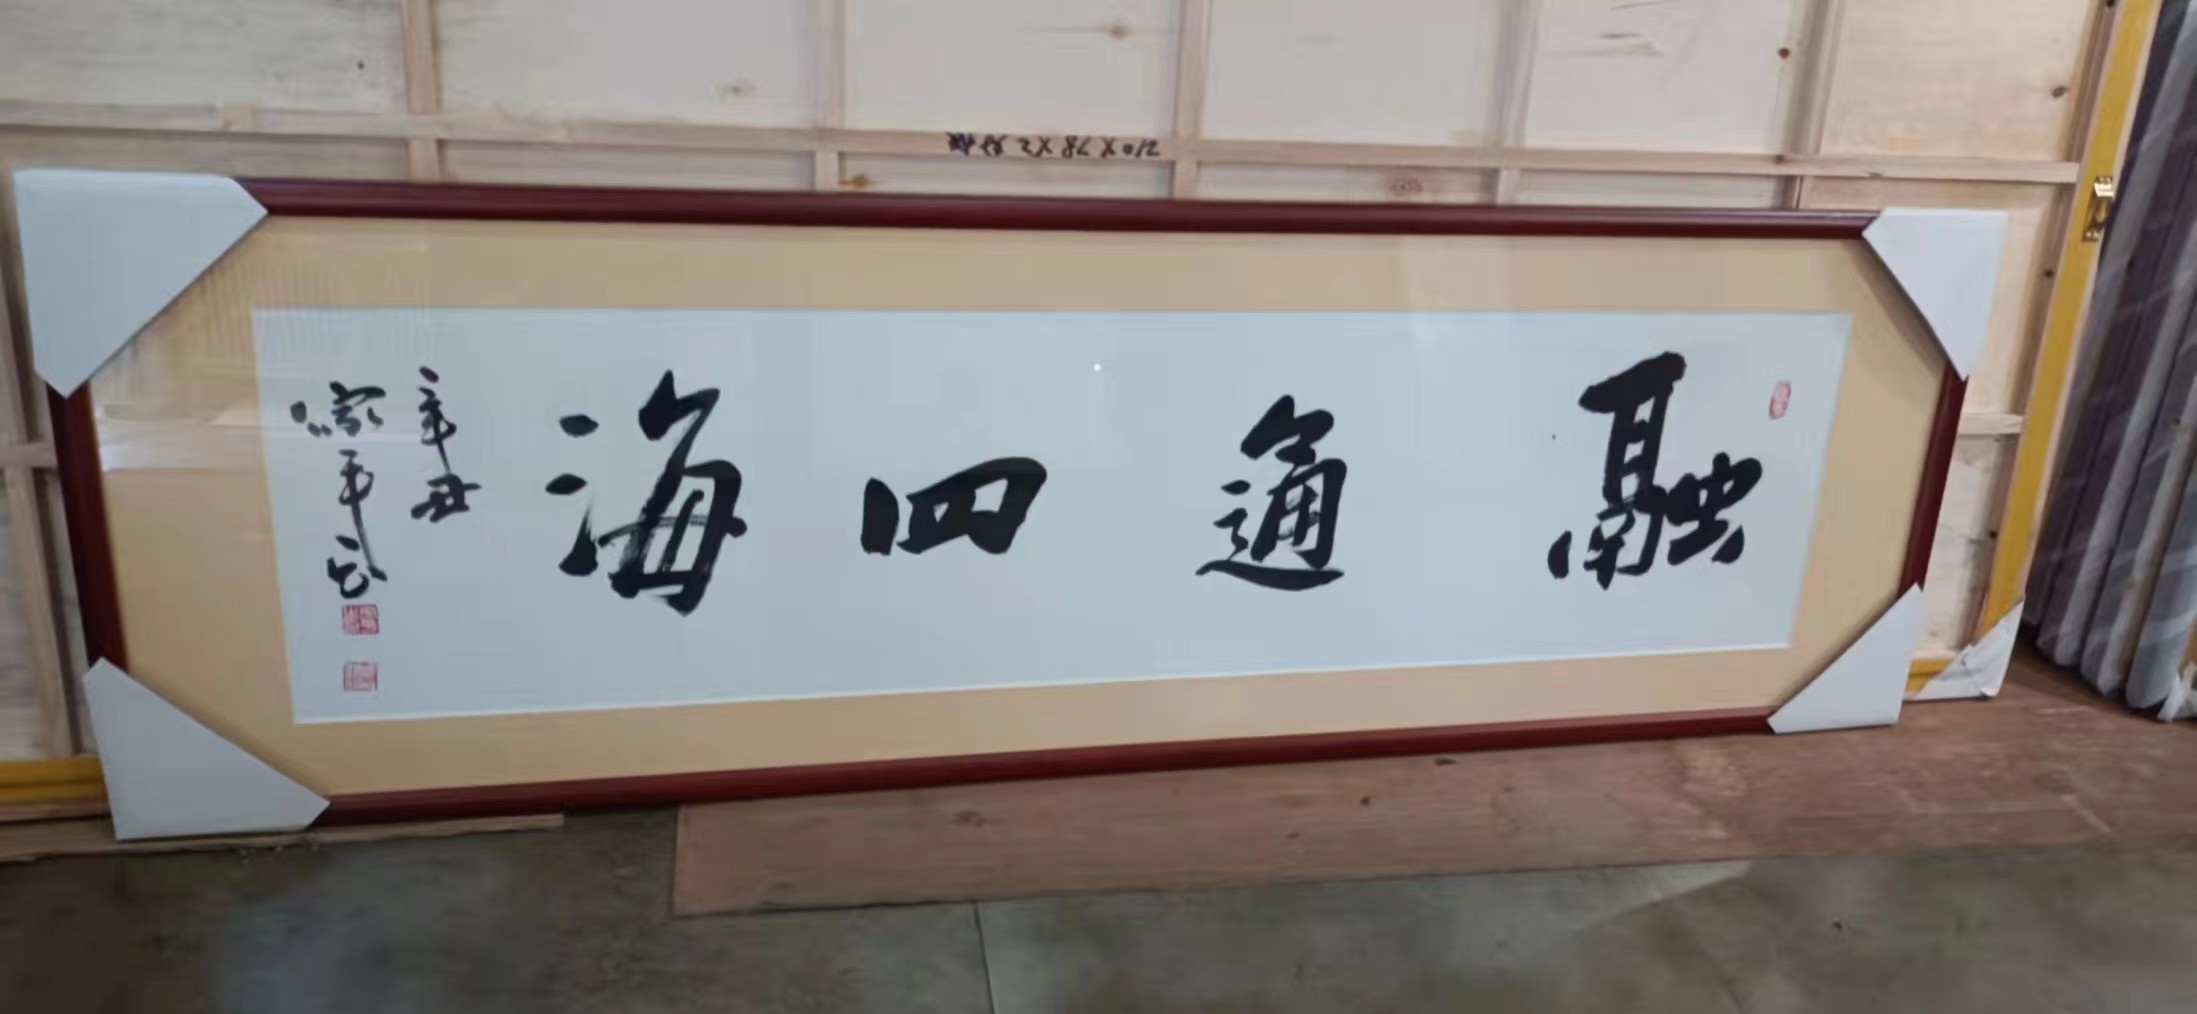 融通四海
辛丑
家平书
210X78X2